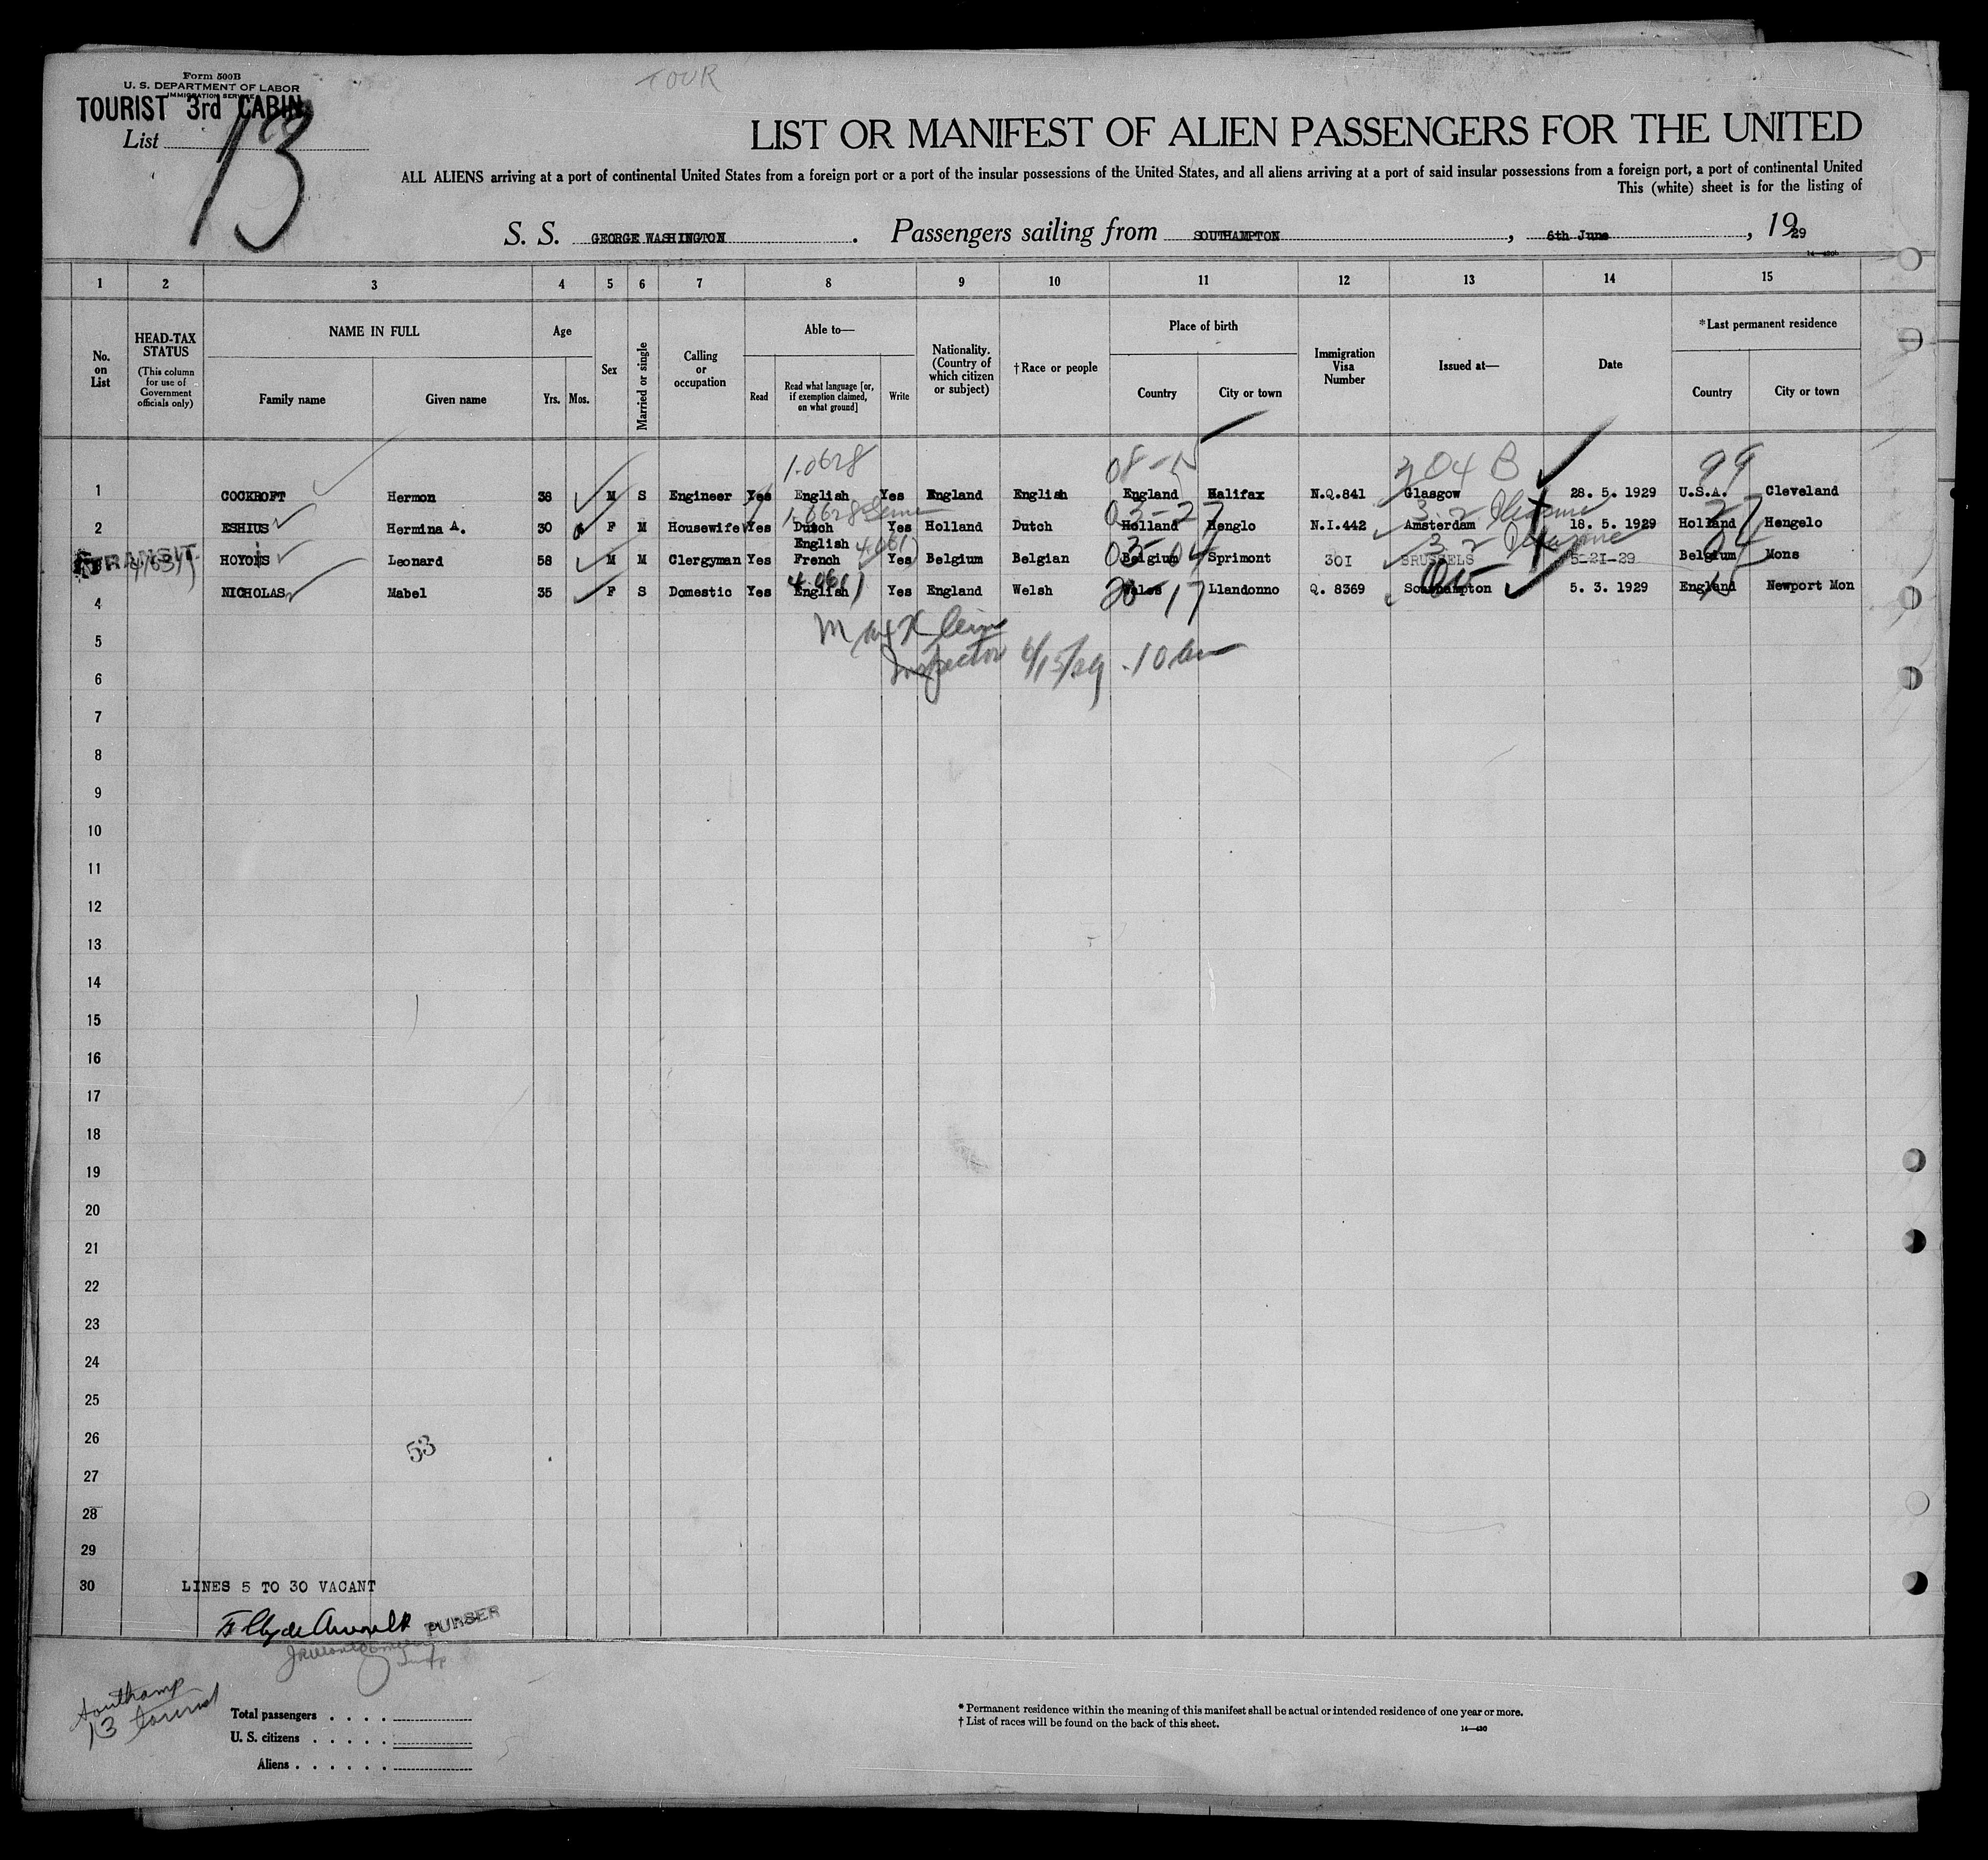 Form 500B
U. S. DEPARTMENT OF LABOR
IMMIGRATION SERVICE
TOUR
TOURIST 3rd CABIN
List 13
LIST OR MANIFEST OF ALIEN PASSENGERS FOR THE UNITED
ALL ALIENS arriving at a port of continental United States from a foreign port or a port of the insular possessions of the United States, and all aliens arriving at a port of said insular possessions from a foreign port, a port of continental United
This (white) sheet is for the listing of
S. S. GEORGE WASHINGTON. Passengers sailing from SOUTHAMPTON, 6th June, 1929
14—420b
1 2 3 4 5 6 7 8 9 10 11 12 13 14 15
No. on List
HEAD-TAX STATUS
(This column for use of Government officials only)
NAME IN FULL
Family name Given name
Age
Yrs. Mos.
Sex
Married or single
Calling or occupation
Able to—
Read
Read what language [or, if exemption claimed, on what ground]
Write
Nationality. (Country of which citizen or subject)
†Race or people
Place of birth
Country City or town
Immigration Visa Number
Issued at—
Date
*Last permanent residence
Country City or town
1.0628 08-15 204 B 99
1 COCKROFT Hermon 38 M S Engineer Yes English Yes England English England Halifax N.Q.841 Glasgow 28. 5. 1929 U.S.A. Cleveland
1.0628 03-27 3.2
2 ESHIUS Hermina A. 30 F M Housewife Yes Dutch Yes Holland Dutch Holland Henglo N.I.442 Amsterdam 18. 5. 1929 Holland Hengelo
English 4.061 03-04 3 2
TRANSIT HOYOIS Leonard 58 M M Clergyman Yes French Yes Belgium Belgian Belgium Sprimont 301 BRUSSELS 5-21-29 Belgium Mons
4.061 20-17 05
4 NICHOLAS Mabel 35 F S Domestic Yes English Yes England Welsh Wales Llandonno Q. 8369 Southampton 5. 3. 1929 England Newport Mon
5
Inspector 6/15/29 .10 am
6
7
8
9
10
11
12
13
14
15
16
17
18
19
20
21
22
23
24
25
26
53
27
28
29
30 LINES 5 TO 30 VACANT
PURSER
Southamp
13 tourist
Total passengers . . . .
U. S. citizens . . . . .
Aliens . . . . . .
* Permanent residence within the meaning of this manifest shall be actual or intended residence of one year or more.
† List of races will be found on the back of this sheet.
14—420